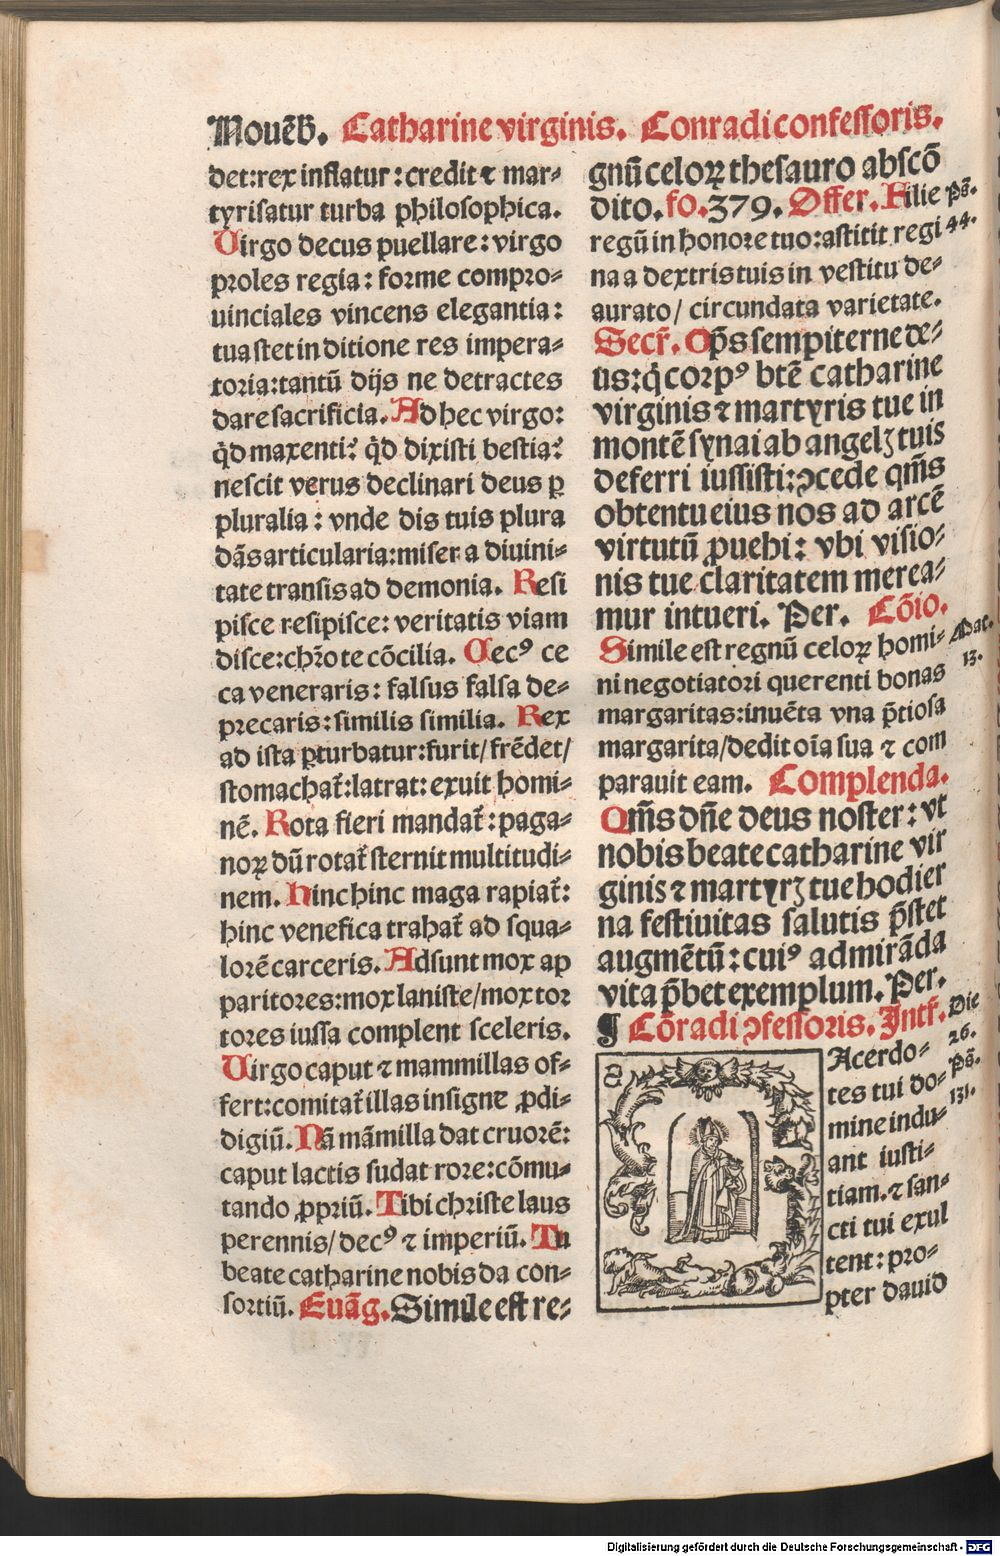 Nouēb. Catharine virginis. Conradi confessoris.
det:rex inflatur:credit ⁊ mar⸗
tyrisatur turba philosophica.
Virgo decus puellare: virgo
proles regia: forme compro⸗
uinciales vincens elegantia:
tua stet in ditione res impera⸗
toria:tantū dijs ne detractes
dare sacrificia. Ad hec virgo:
qd̄ maxenti? qd̄ dixisti bestia?
nescit verus declinari deus ꝑ
pluralia: vnde dis tuis plura
dās articularia:miser a diuini⸗
tate transis ad demonia. Resi
pisce resipisce: veritatis viam
disce:chr̄o te cōcilia. Cecꝰ ce
ca veneraris: falsus falsa de⸗
precaris:similis similia. Rex
ad ista ꝑturbatur:furit/frēdet/
stomachat̄:latrat: exuit homi⸗
nē. Rota fieri mandat̄: paga⸗
noꝝ dū rotat̄ sternit multitudi⸗
nem. Hinc hinc maga rapiat̄:
hinc venefica trahat̄ ad squa⸗
lorē carceris. Adsunt mox ap
paritores:mox laniste/mox tor
tores iussa complent sceleris.
Virgo caput ⁊ mammillas of⸗
fert:comitat̄ illas insigne ꝓdi⸗
digiū. Nā māmilla dat cruorē:
caput lactis sudat rore:cōmu⸗
tando ꝓpriū. Tibi christe laus
perennis/decꝰ ⁊ imperiū. Tu
beate catharine nobis da con⸗
sortiū. Euāg. Simile est re⸗
gnū celoꝝ thesauro abscō
dito. fo. 379. Offer. Filie
regū in honore tuo:astitit regi
na a dextris tuis in vestitu de⸗
aurato/ circundata varietate.
Secr̄. Op̄s sempiterne de⸗
us:q̇ corpꝰ btē catharine
virginis ⁊ martyris tue in
montē synai ab angelꝫ tuis
deferri iussisti:ꝯcede qm̄s
obtentu eius nos ad arcē
virtutū ꝓuehi: vbi visio⸗
nis tue claritatem merea⸗
mur intueri. Per. Cōio.
Simile est regnū celoꝝ homi⸗
ni negotiatori querenti bonas
margaritas:inuēta vna p̄tiosa
margarita/dedit oīa sua ⁊ com
parauit eam. Complenda.
Qm̄s dn̄e deus noster: vt
nobis beate catharine vir
ginis ⁊ martyrꝫ tue hodier
na festiuitas salutis p̄stet
augmētū: cuiꝰ admirāda
vita p̄bet exemplum. Per.
¶ Cōradi ꝯfessoris. Intr̄.
Acerdo⸗
tes tui do⸗
mine indu⸗
ant iusti⸗
tiam. ⁊ san⸗
cti tui exul
tent: pro⸗
pter dauid
Ps̄.
44.
Mat.
13.
Die
26.
Ps̄.
131.
Digitalisierung gefördert durch die Deutsche Forschungsgemeinschaft - DFG